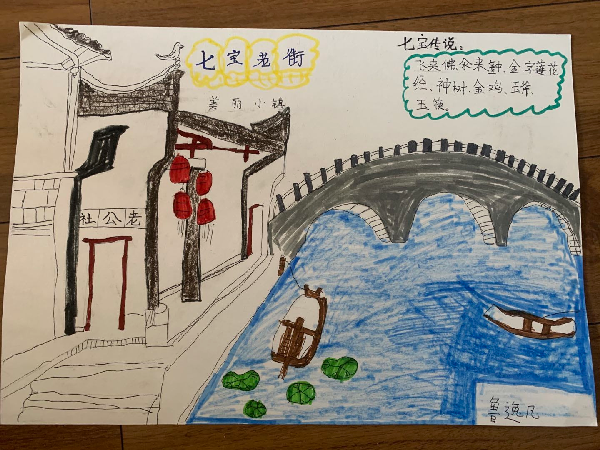 七宝老街
美丽小镇
七宝传说：
飞来佛、氽来钟、金字莲花
经、神树、金鸡、玉斧、
玉筷。
社公老
鲁逸凡